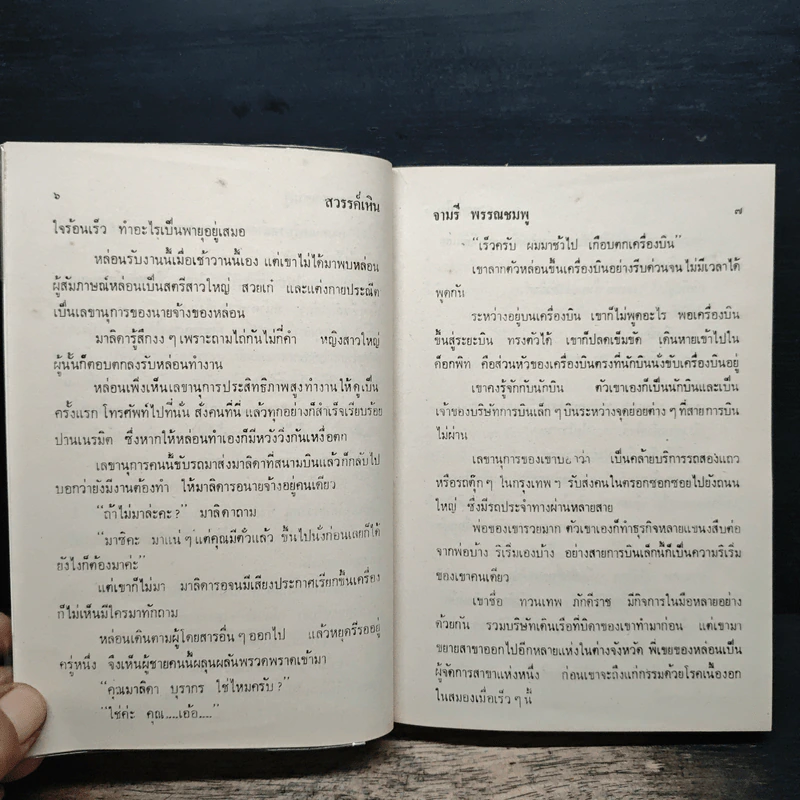 ๖
สวรรค์เหิน
ใจร้อนเร็ว ทำอะไรเป็นพายุอยู่เสมอ
หล่อนรับงานนี้เมื่อเช้าวานนี้เอง แต่เขาไม่ได้มาพบหล่อน
ผู้สัมภาษณ์หล่อนเป็นสตรีสาวใหญ่ สวยเก๋ และแต่งกายประณีต
เป็นเลขานุการของนายจ้างของหล่อน
มาลิดารู้สึกงง ๆ เพราะถามไถ่กันไม่กี่คำ หญิงสาวใหญ่
ผู้นั้นก็ตอบตกลงรับหล่อนทำงาน
หล่อนเพิ่งเห็นเลขานุการประสิทธิภาพสูงทำงานให้ดูเป็น
ครั้งแรก โทรศัพท์ไปที่นั่น สั่งคนที่นี่ แล้วทุกอย่างก็สำเร็จเรียบร้อย
ปานเนรมิต ซึ่งหากให้หล่อนทำเองก็มีหวังวิ่งกันเหงื่อตก
เลขานุการคนนี้ขับรถมาส่งมาลิดาที่สนามบินแล้วก็กลับไป
บอกว่ายังมีงานต้องทำ ให้มาลิดารอนายจ้างอยู่คนเดียว
“ถ้าไม่มาล่ะคะ?” มาลิดาถาม
“มาซิคะ มาแน่ ๆ แต่คุณมีตั๋วแล้ว ขึ้นไปนั่งก่อนเลยก็ได้
ยังไงก็ต้องมาค่ะ”
แต่เขาก็ไม่มา มาลิดารอจนมีเสียงประกาศเรียกขึ้นเครื่อง
ก็ไม่เห็นมีใครมาทักถาม
หล่อนเดินตามผู้โดยสารอื่น ๆ ออกไป แล้วหยุดรีรออยู่
ครู่หนึ่ง จึงเห็นผู้ชายคนนี้ผลุนผลันพรวดพราดเข้ามา
“คุณมาลิดา บุรากร ใช่ไหมครับ?”
“ใช่ค่ะ คุณ....เอ้อ....”
จามรี พรรณชมพู
๗
“เร็วครับ ผมมาช้าไป เกือบตกเครื่องบิน”
เขาลากตัวหล่อนขึ้นเครื่องบินอย่างรีบด่วนจนไม่มีเวลาได้
พูดกัน
ระหว่างอยู่บนเครื่องบิน เขาก็ไม่พูดอะไร พอเครื่องบิน
ขึ้นสู่ระยะบิน ทรงตัวได้ เขาก็ปลดเข็มขัด เดินหายเข้าไปใน
ค็อกพิท คือส่วนหัวของเครื่องบินตรงที่นักบินนั่งขับเครื่องบินอยู่
เขาคงรู้จักกับนักบิน ตัวเขาเองก็เป็นนักบินและเป็น
เจ้าของบริษัทการบินเล็ก ๆ บินระหว่างจุดย่อยต่าง ๆ ที่สายการบิน
ไม่ผ่าน
เลขานุการของเขาบอกว่า เป็นคล้ายบริการรถสองแถว
หรือรถตุ๊ก ๆ ในกรุงเทพ ฯ รับส่งคนในตรอกซอกซอยไปยังถนน
ใหญ่ ซึ่งมีรถประจำทางผ่านหลายสาย
พ่อของเขารวยมาก ตัวเขาเองก็ทำธุรกิจหลายแขนงสืบต่อ
จากพ่อบ้าง ริเริ่มเองบ้าง อย่างสายการบินเล็กนี้ก็เป็นความริเริ่ม
ของเขาคนเดียว
เขาชื่อ ทวนเทพ ภักดีราช มีกิจการในมือหลายอย่าง
ด้วยกัน รวมบริษัทเดินเรือที่บิดาของเขาทำมาก่อน แต่เขามา
ขยายสาขาออกไปอีกหลายแห่งในต่างจังหวัด พี่เขยของหล่อนเป็น
ผู้จัดการสาขาแห่งหนึ่ง ก่อนเขาจะถึงแก่กรรมด้วยโรคเนื้องอก
ในสมองเมื่อเร็ว ๆ นี้